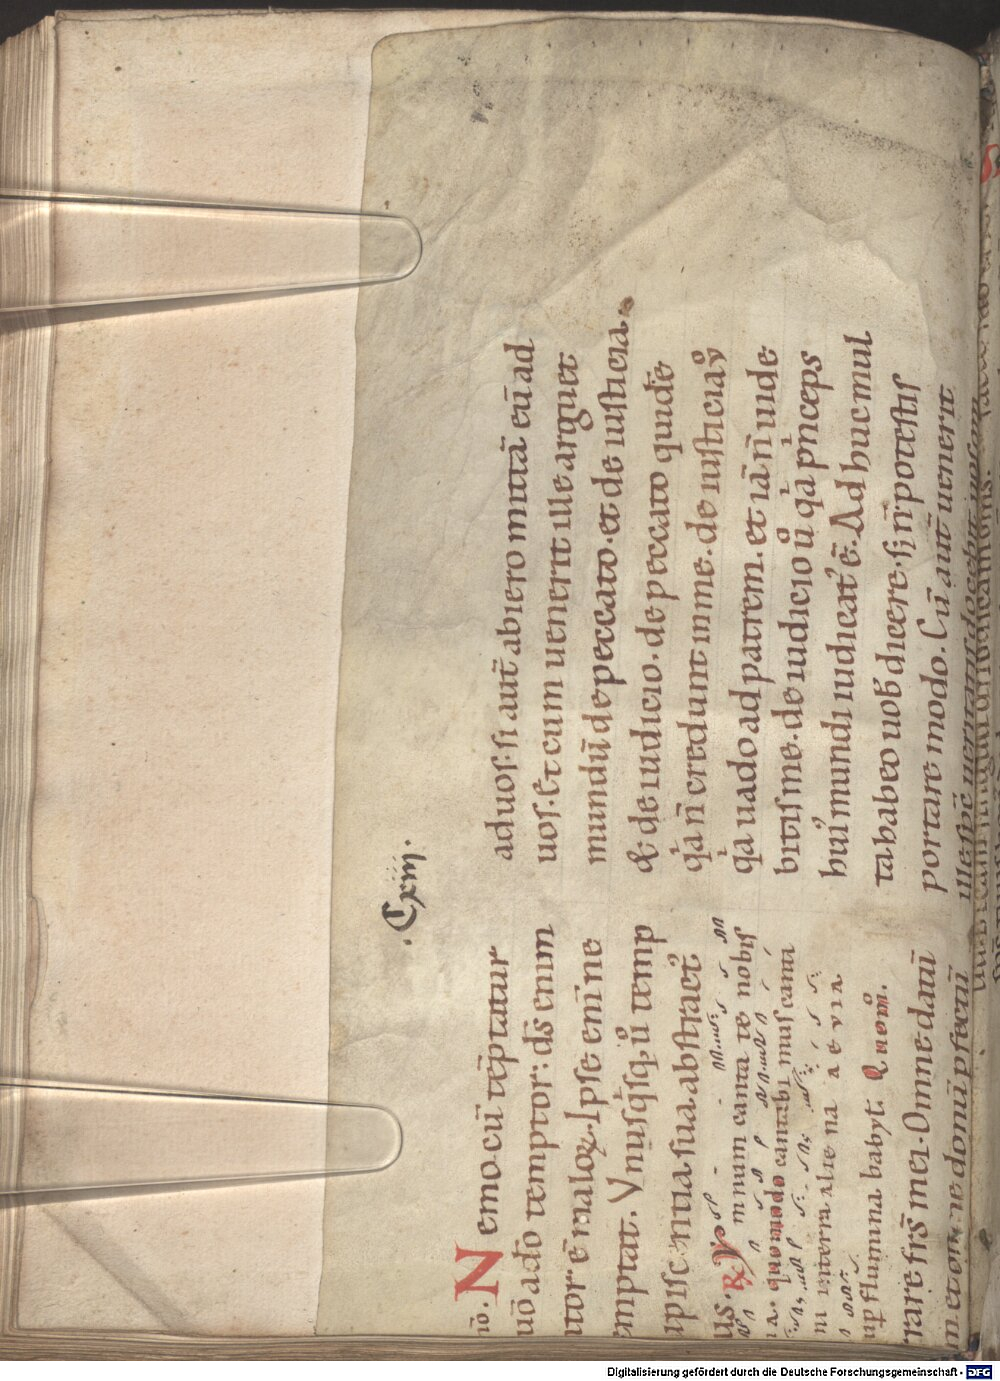 .Cxiiij.
io. Nemo cū tēptatur
uō a dō temptor: ds̄ enim
itor ē maloꝝ. Ipse eni ne
mptat. Vnusqⁱsq; ůo temp
upiscentia sua abstract⁹
us. R̶ Ymnum cantate nobis
ia. quomodo cantabimus canti
ni in terra aliena aevia
up flumina babyl. Quom̊.
rrare frs̄ mei. Omne datū
m. et omne donū pfectū
ad uos. si aut̄ abiero mittā eū ad
uos. Et cum uenerit ille arguet
mundū de peccato. et de iusticia.
& de iudicio. de peccato quidē
qⁱa n̄ credunt in me. de iusticia ů
qⁱa uado ad patrem. et iā n̄ uide
bitis me. de iudicio ů qⁱa pⁱnceps
hui⁹ mundi iudicat⁹ ē. Adhuc mul
ta habeo uob dicere. s; n̄ potestis
portare modo. Cū aut̄ uenerit
ille spc̄ ueritatis docebit uos om
Digitalisierung gefördert durch die Deutsche Forschungsgemeinschaft - DFG